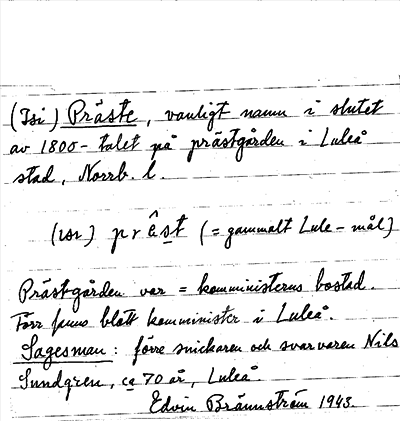 (Isi) Präste, vanligt namn i slutet
av 1800-talet på prästgården i Luleå
stad, Norrb. l.
(isi) prêst (= gammalt Lule-mål)
Prästgården var = komministerns bostad.
Förr fanns blott komminister i Luleå.
Sagesman: förre snickaren och svarvaren Nils
Sundgren, ca 70 år, Luleå.
Edvin Brännström 1943.